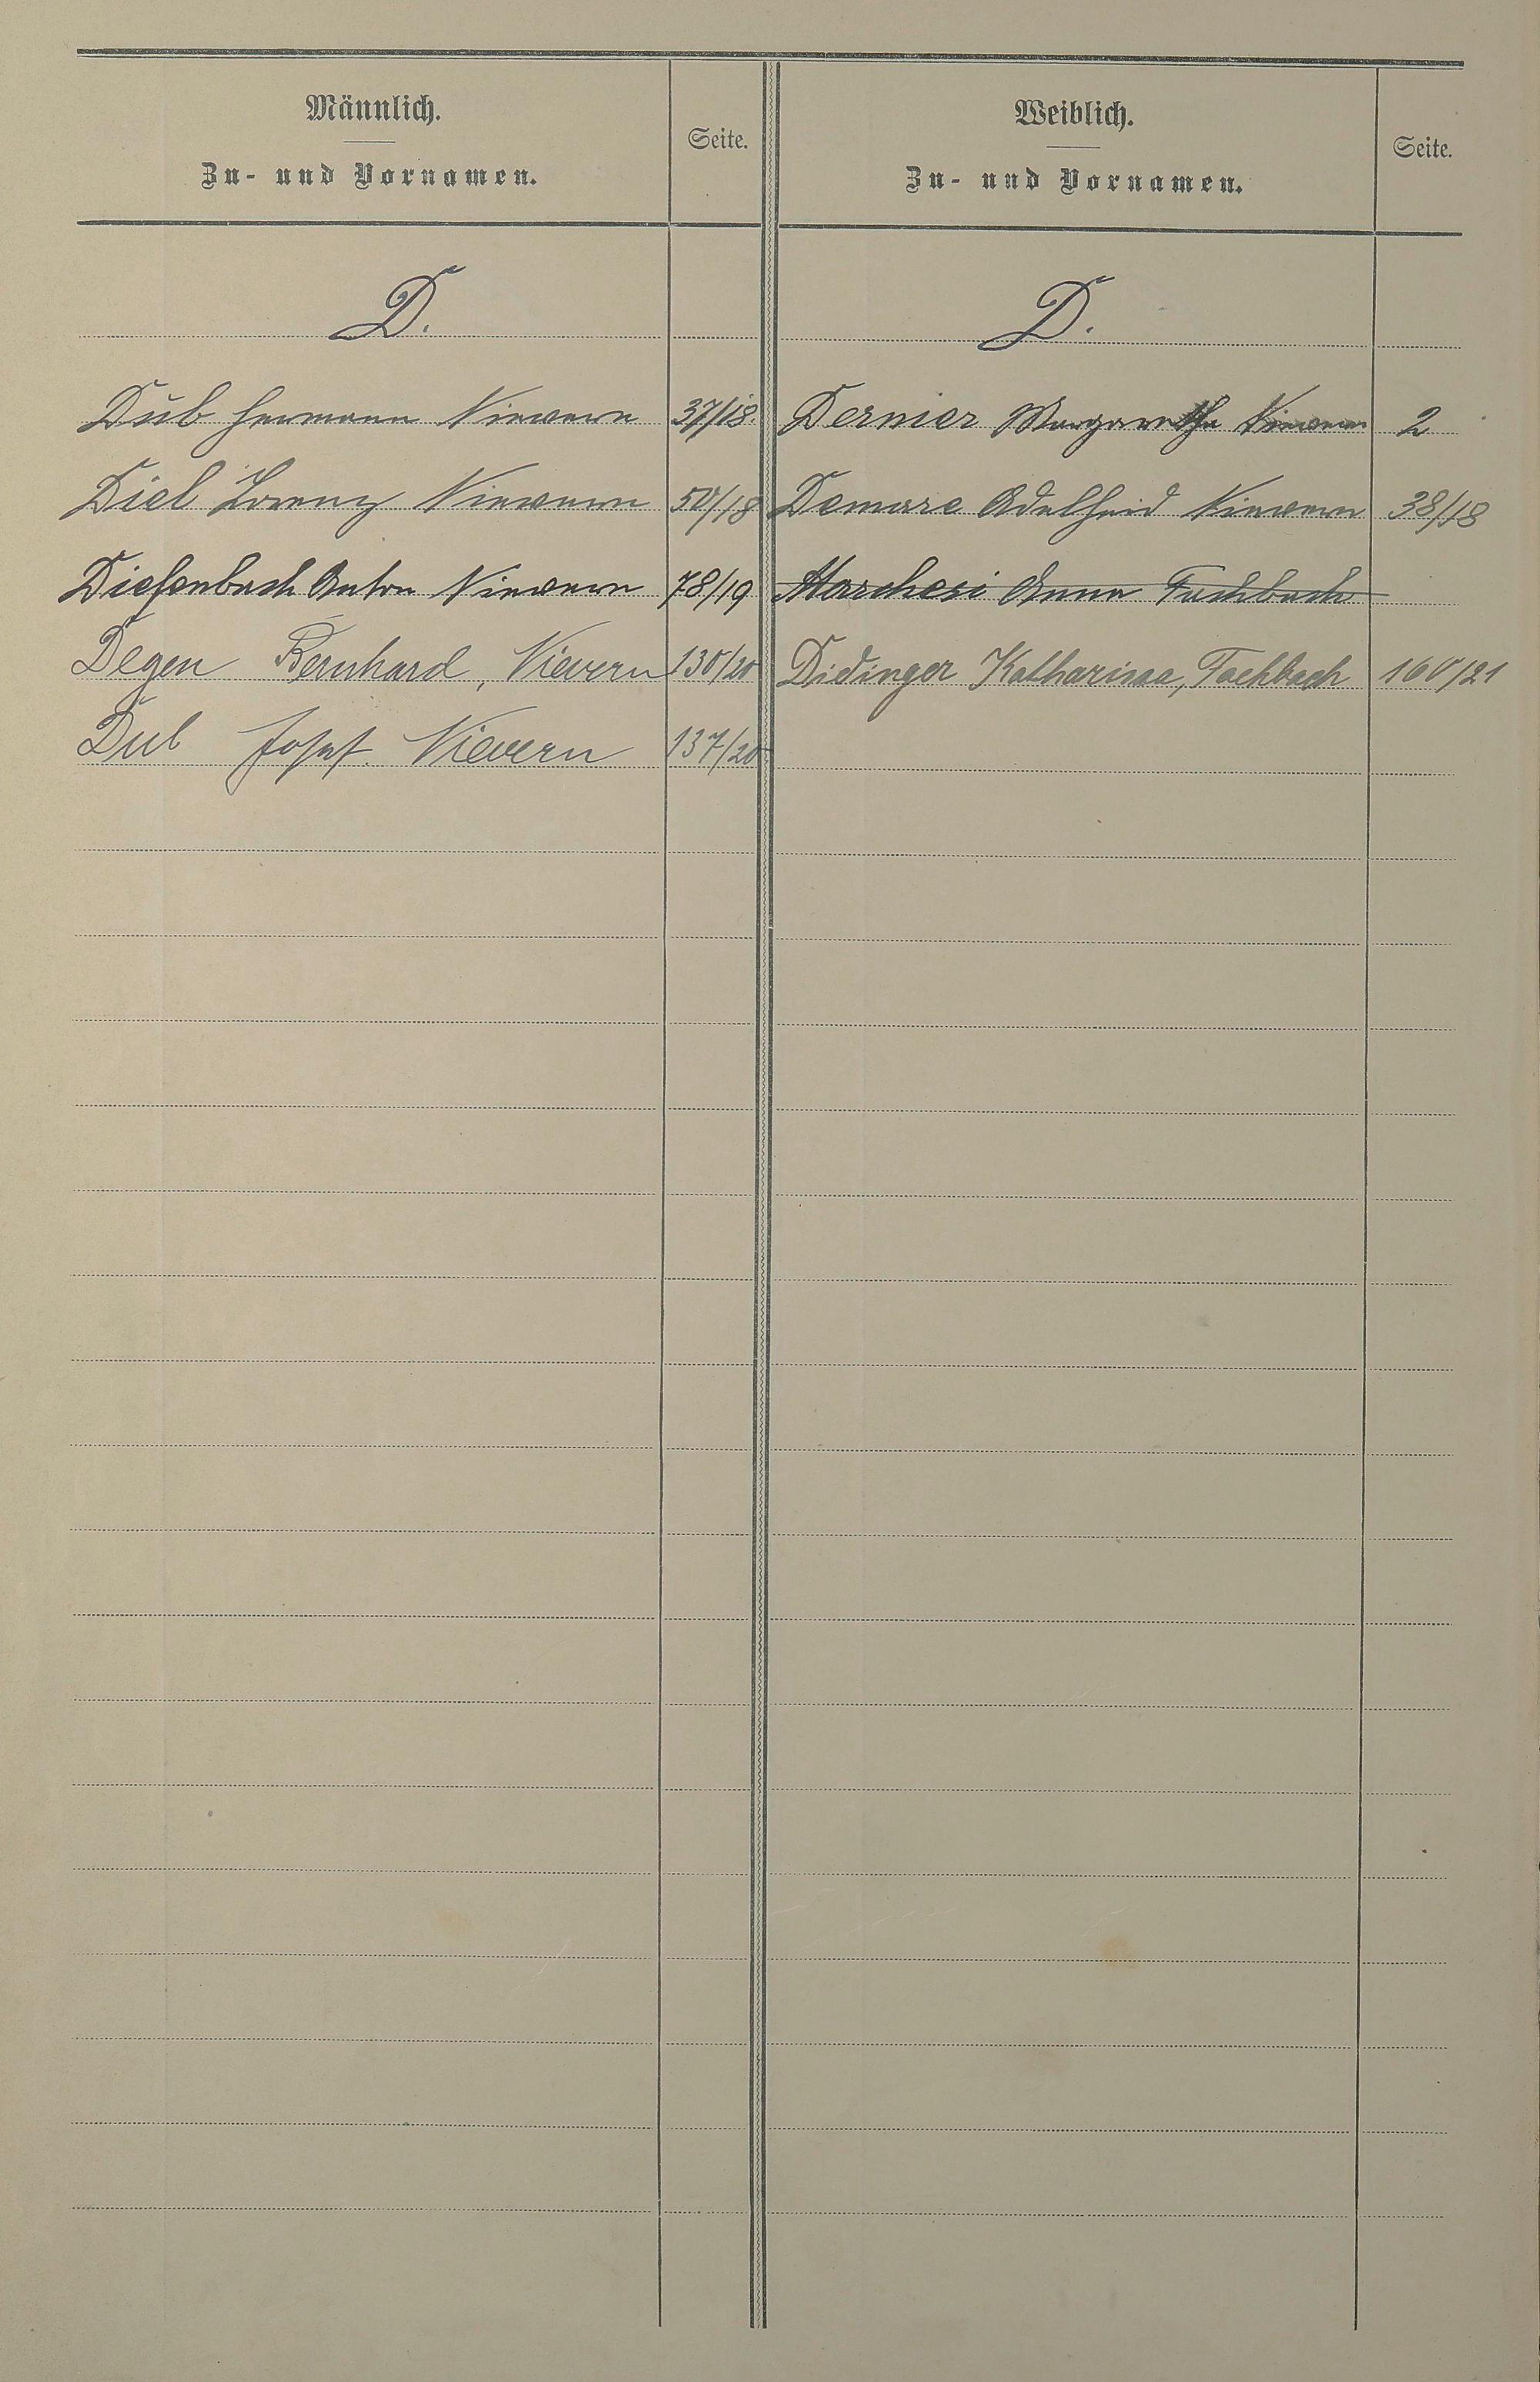 Männlich.
Zu- und Vornamen.
Seite.
Weiblich.
Zu- und Vornamen.
Seite.
D.
D.
Dub Hermann Nievern 37/18.
Dernier Margarethe Nievern 2
Diel Lorenz Nievern 50/18
Demare Adelheid Nievern 38/18
Diefenbach Anton Nievern 78/19
Marchesi Anna Fachbach
Degen Bernhard, Nievern 130/20
Didinger Katharina, Fachbach 160/21
Dub Josef. Nievern 137/20